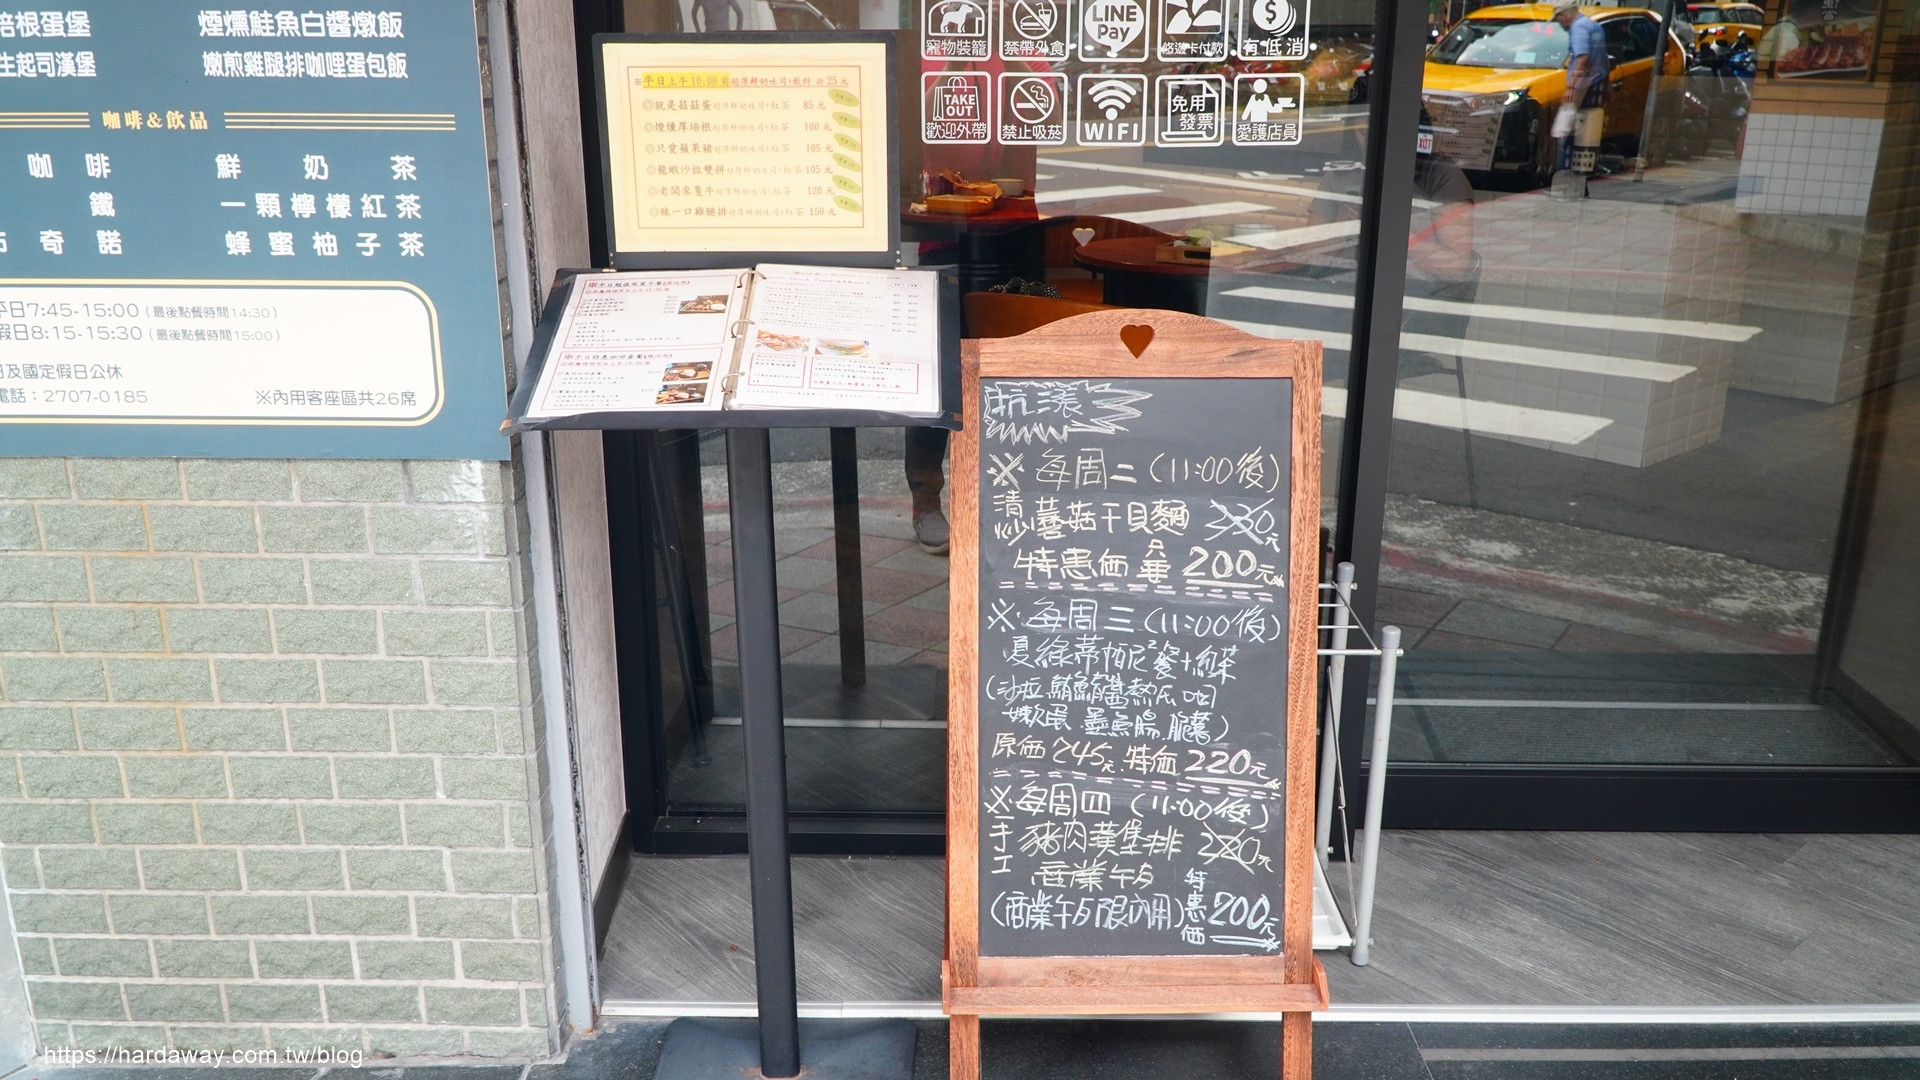 培根蛋堡
煙燻鮭魚白醬燉飯
生起司漢堡
嫩煎雞腿排咖哩蛋包飯
咖啡&飲品
咖啡
鮮奶茶
鐵
一顆檸檬紅茶
奇諾
蜂蜜柚子茶
平日7:45-15:00(最後點餐時間14:30)
假日8:15-15:30(最後點餐時間15:00)
日及國定假日公休
電話:2707-0185
※內用客座區共26席
※平日上午10:00前超厚鮮奶吐司+飲料 折25元
◎就是菇菇蛋超厚鮮奶吐司+紅茶 85元
◎煙燻厚培根超厚鮮奶吐司+紅茶 100元
◎只愛蘋果豬超厚鮮奶吐司+紅茶 105元
◎龍蝦沙拉雙拼超厚鮮奶吐司+紅茶 105元
◎老闆來隻牛超厚鮮奶吐司+紅茶 120元
◎辣一口雞腿排超厚鮮奶吐司+紅茶 150元
寵物裝籠
禁帶外食
LINE Pay
悠遊卡付款
有低消
TAKE OUT
歡迎外帶
禁止吸菸
WIFI
免用發票
愛護店員
抗漲
※每周二(11:00後)
清炒蘑菇干貝麵 330元
特惠価 只要 200元
※每周三(11:00後)
夏綠蒂帕尼尼餐+紅茶
(沙拉.鮪魚醬熱瓜咖
嫩蛋.墨魚腸.脆薯)
原価245元.特価220元
※每周四(11:00後)
手工豬肉漢堡排 280元
商業午餐 特惠価
(商業午餐限內用) 200元
https://hardaway.com.tw/blog